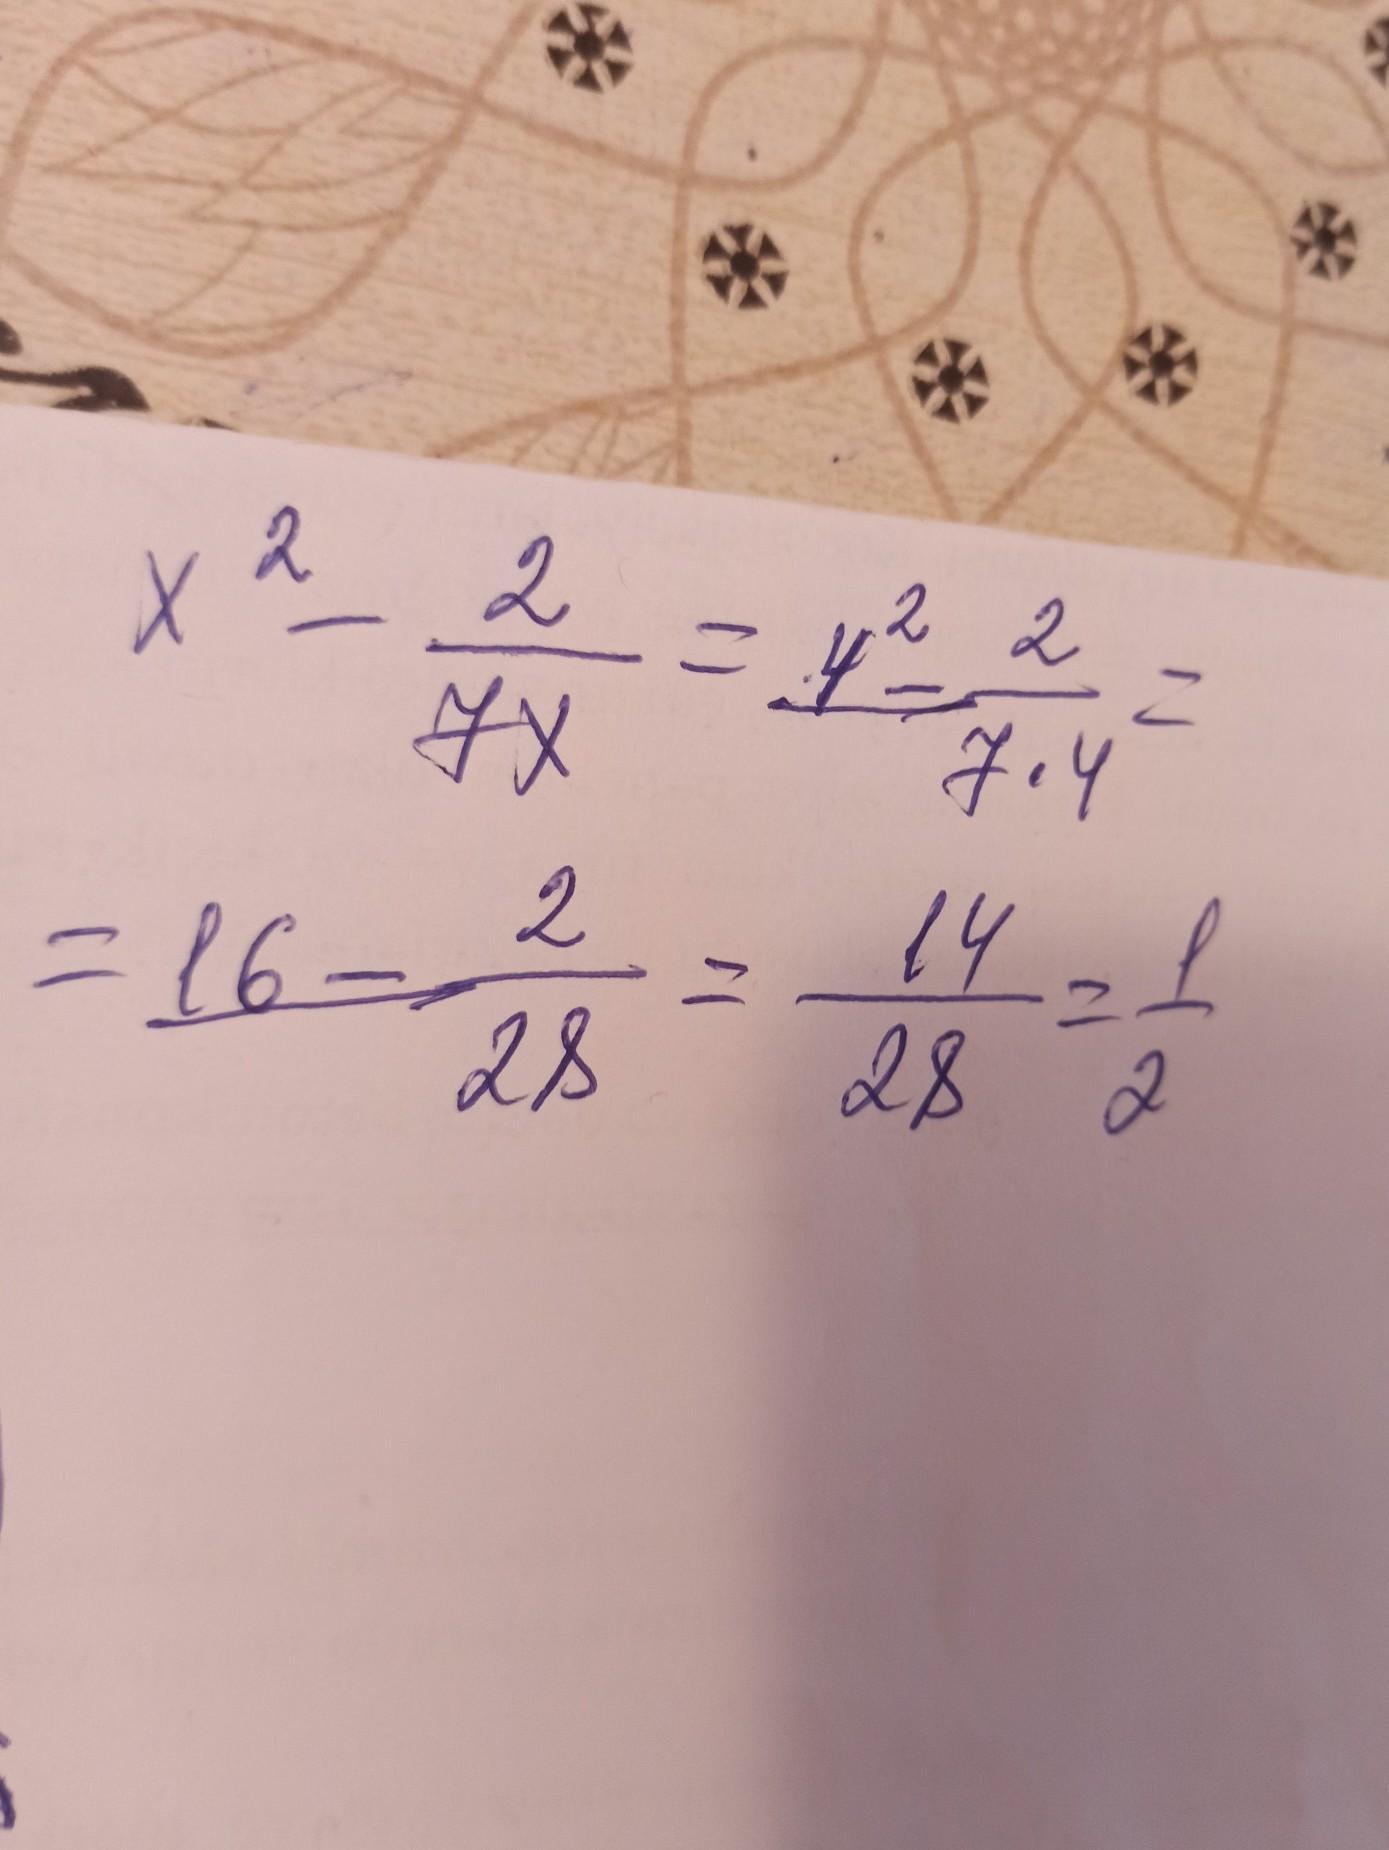 x² - 2/7x = 4² - 2/7·4 =
= 16 - 2/28 = 14/28 = 1/2